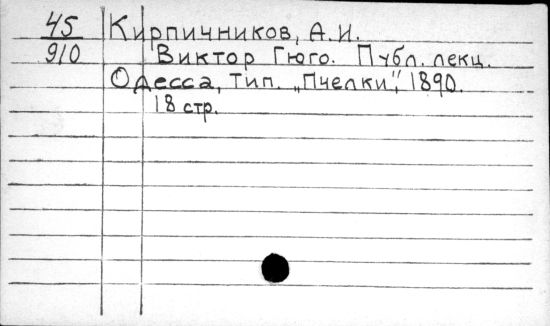 45 Кирпичников, А.И.
910 Виктор Гюго. Публ. лекц.
Одесса, Тип. „Пчелки", 1890.
18 стр.